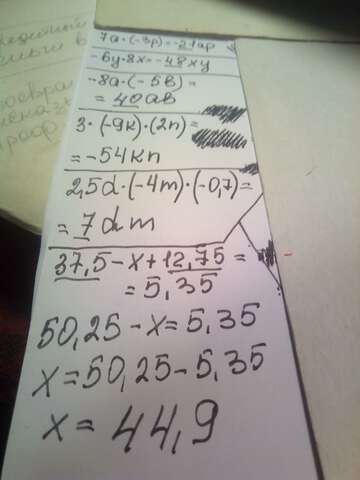 7a·(-3p)=-21ap
-6y·8x=-48xy
-8a·(-5b)=
=40ab
3·(-9k)·(2n)=
=-54kn
2,5d·(-4m)·(-0,7)=
=7dm
37,5-x+12,75=
=5,35
50,25-x=5,35
x=50,25-5,35
x=44,9